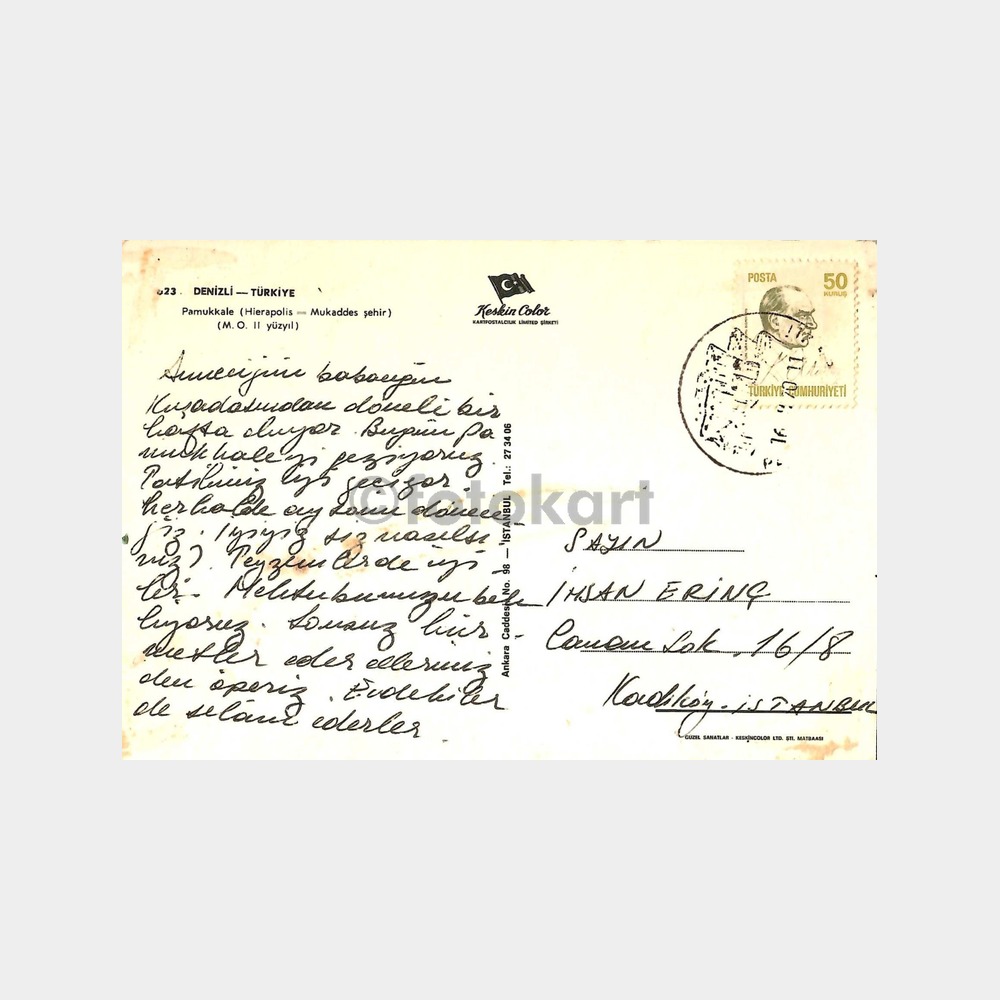 623. DENİZLİ — TÜRKİYE
Pamukkale (Hierapolis — Mukaddes şehir)
(M. O. II yüzyıl)
Keskin Color
KARTPOSTALCILIK LIMITED ŞİRKETİ
POSTA 50
KURUŞ
TÜRKİYE CUMHURİYETİ
Anneciğim babacığım
Kuşadasından döneli bir
hafta oluyor. Bugün Pa
mukkale yi geziyoruz.
Tatilimiz iyi geçiyor
herhalde ay sonu dönece
ğiz. İyiyiz siz nasılsı
nız? Teyzemlerde iyi
ler. Mektubunuzu bek
liyoruz. Sonsuz hür-
metler eder ellerinizden
den öperiz. Evdekiler
de selâm ederler.
Ankara Caddesi No. 98 — İSTANBUL Tel.: 27 34 06
©fotokart
SAYIN
İHSAN ERİNÇ
Canan Sok. 16/8
Kadıköy-İSTANBUL
GÜZEL SANATLAR - KESKİNCOLOR LTD. ŞTİ. MATBAASI